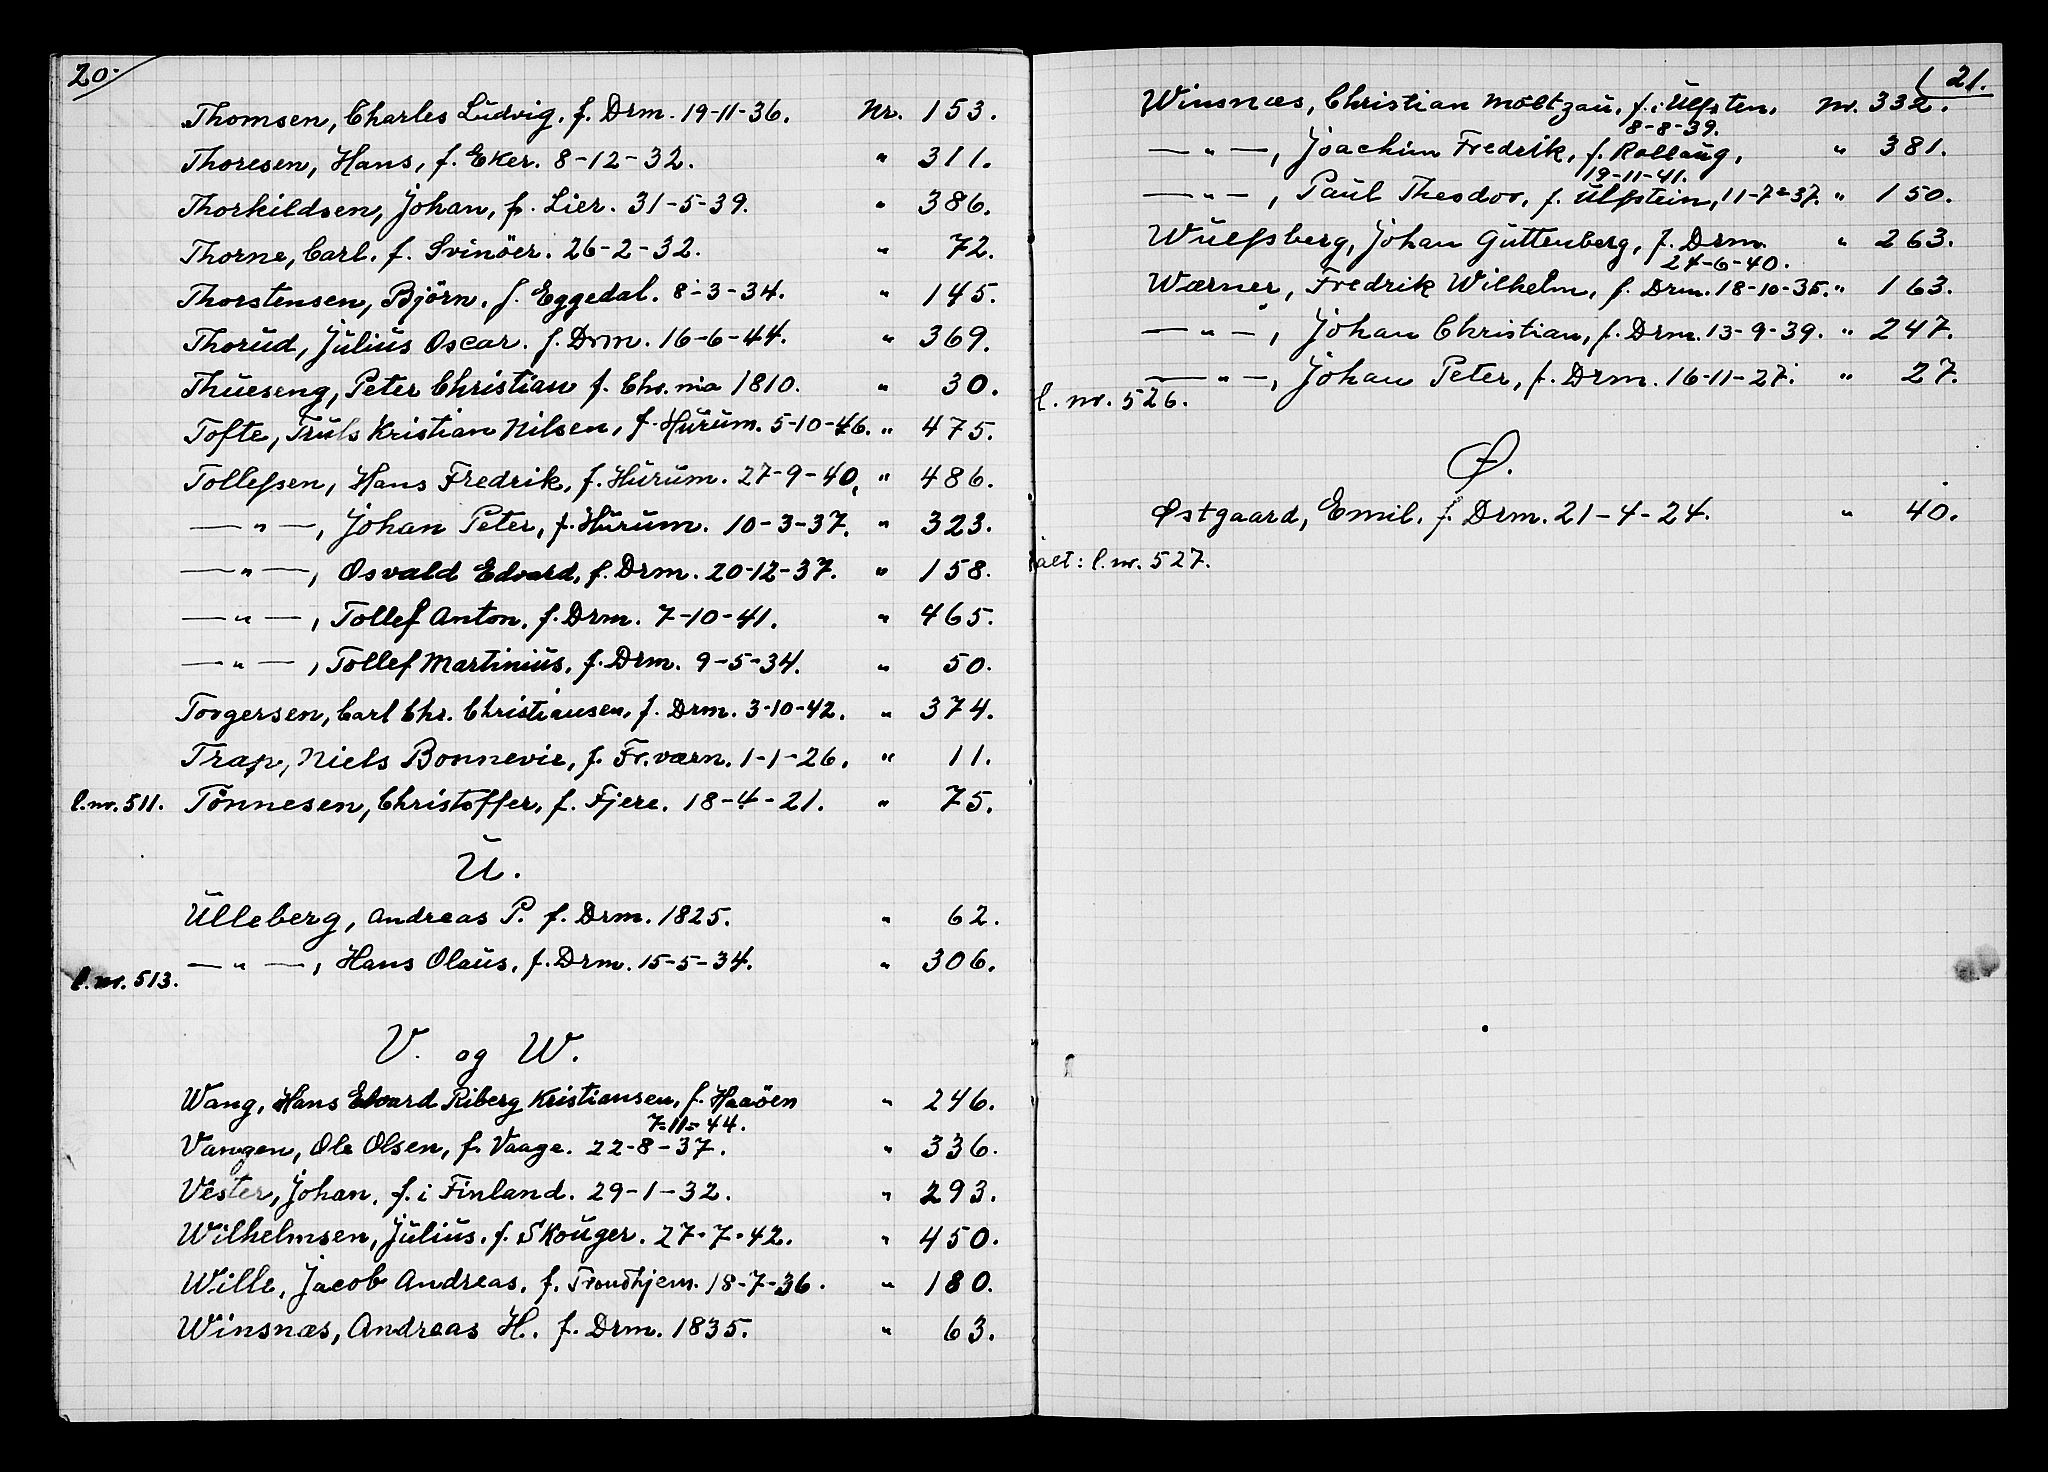 20.
Thomsen, Charles Ludvig, f. Drm. 19-11-36. Nr. 153.
Thoresen, Hans, f. Eker. 8-12-32. " 311.
Thorkildsen, Johan, f. Lier. 31-5-39. " 386.
Thorne, Carl. f. Svinöer. 26-2-32. " 72.
Thorstensen, Björn. f. Eggedal. 8-3-34. " 145.
Thorud, Julius Oscar. f. Drm. 16-6-44. " 369.
Thueseng, Peter Christian f. Chr.nia 1810. " 30.
Tofte, Truls Kristian Nilsen, f. Hurum. 5-10-46. " 475.
Tollefsen, Hans Fredrik, f. Hurum. 27-9-40, " 486.
— " —, Johan Peter, f. Hurum. 10-3-37. " 323.
— " —, Osvald Edvard, f. Drm. 20-12-37. " 158.
— " —, Tollef Anton. f. Drm. 7-10-41. " 465.
— " —, Tollef Martinius, f. Drm. 9-5-34. " 50.
Torgersen, Carl Chr. Christiansen, f. Drm. 3-10-42. " 374.
Trap, Niels Bonnevie, f. Fr.værn. 1-1-26. " 11.
l.nr. 511. Tönnesen, Christoffer, f. Fjere. 18-4-21. " 75.
U.
Ulleberg, Andreas P. f. Drm. 1825. " 62.
— " —, Hans Olaus, f. Drm. 15-5-34. " 306.
l.nr. 513.
V. og W.
Wang, Hans Edvard Riberg Kristiansen, f. Haaöen " 246.
7-11-44.
Vangen, Ole Olsen, f. Vaage. 22-8-37. " 336.
Vester, Johan, f. i Finland. 29-1-32. " 293.
Wilhelmsen, Julius. f. Skouger. 27-7-42. " 450.
Wille, Jacob Andreas, f. Trondhjem. 18-7-36. " 180.
Winsnæs, Andreas H. f. Drm. 1835. " 63.
21.
Winsnæs, Christian Möltzau, f. i Ulfsten, nr. 332.
8-8-39.
— " —, Joachim Fredrik, f. Rollaug, " 381.
19-11-41.
— " —, Paul Theodor, f. Ulfstein, 11-7-37. " 150.
Wulfsberg, Johan Guttenberg, f. Drm. " 263.
24-6-40.
Wærner, Fredrik Wilhelm, f. Drm. 18-10-35. " 163.
— " —, Johan Christian, f. Drm. 13-9-39. " 247.
— " —, Johan Peter, f. Drm. 16-11-27. " 27.
l. nr. 526.
Ø.
Østgaard, Emil. f. Drm. 21-4-24. " 40.
ialt: l.nr. 527.